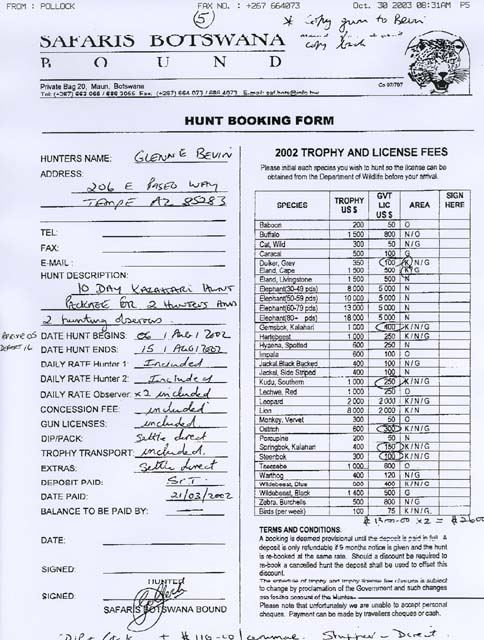 FROM : POLLOCK FAX NO. : +267 664073 Oct. 30 2003 08:31AM P5
5
* Copy given to Bevin
copy back
SAFARIS BOTSWANA
BOUND
Private Bag 20, Maun, Botswana
Co 97/797
HUNT BOOKING FORM
HUNTERS NAME: GLENN E BEVIN
ADDRESS:
206 E PASEO WAY
TEMPE AZ 85283
TEL:
FAX:
E-MAIL:
HUNT DESCRIPTION:
10 DAY KALAHARI HUNT
PACKAGE FOR 2 HUNTERS AND
2 hunting observers.
ARRIVE 05
DEPART 16
DATE HUNT BEGINS: 06 / AUG / 2002
DATE HUNT ENDS: 15 / AUG / 2002
DAILY RATE Hunter 1: Included
DAILY RATE Hunter 2: Included
DAILY RATE Observer: x2 included
CONCESSION FEE: included
GUN LICENSES: included
DIP/PACK: Settle direct
TROPHY TRANSPORT: included.
EXTRAS: Settle direct
DEPOSIT PAID:
DATE PAID: 21/03/2002
BALANCE TO BE PAID BY:
DATE:
SIGNED:
HUNTER
SIGNED:
SAFARIS BOTSWANA BOUND
2002 TROPHY AND LICENSE FEES
Please initial each species you wish to hunt so the license can be
obtained from the Department of Wildlife before your arrival.
SPECIES TROPHY US $ GVT LIC US $ AREA SIGN HERE
Baboon 200 50 O
Buffalo 1 500 800 N/O
Cat, Wild 300 50 N/G
Caracal 500 100 G
Duiker, Grey 350 100 K/N/G
Eland, Cape 1 500 500 K/G
Eland, Livingstone 1 500 500 N
Elephant(30-49 pds) 8 000 5 000 N
Elephant(50-59 pds) 10 000 5 000 N
Elephant(60-79 pds) 13 000 5 000 N
Elephant(80+ pds) 18 000 5 000 N
Gemsbok, Kalahari 1 000 400 K/N/G
Hartebeest 1 000 250 K/N/G
Hyaena, Spotted 600 250 N
Impala 600 100 O
Jackal, Black Backed 400 100 N/G
Jackal, Side Striped 400 100 N
Kudu, Southern 1 000 250 K/N/G
Lechwe, Red 1 000 250 O
Leopard 2 000 2 000 K/N/G
Lion 8 000 2 000 K/N
Monkey, Vervet 300 50 O
Ostrich 600 300 K/N/G
Porcupine 200 50 N
Springbok, Kalahari 400 150 K/N/G
Steenbok 300 100 K/N/G
Tsessebe 1 000 600 O
Warthog 400 120 N/G
Wildebeest, Blue 800 400 K/N/G
Wildebeest, Black 1 400 500 G
Zebra, Burchells 500 800 N/G
Birds (per week) 100 75 K/N/G
$ 1300-00 x 2 = $ 2600
TERMS AND CONDITIONS:
A booking is deemed provisional until the deposit is paid in full. A
deposit is only refundable if 9 months notice is given and the hunt
is re-booked at the same rate. Should a discount be required to
re-book a cancelled hunt the deposit shall be used to offset this
discount.
The schedule of trophy and trophy license fee charges is subject
to change by proclamation of the Government and such changes
are for the account of the Hunter.
Please note that unfortunately we are unable to accept personal
cheques. Payment can be made by travellers cheques or cash.